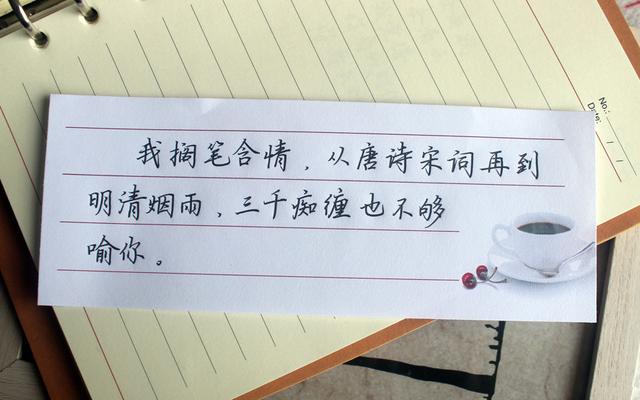 我搁笔含情，从唐诗宋词再到
明清烟雨，三千痴缠也不够
喻你。
No:
Date: